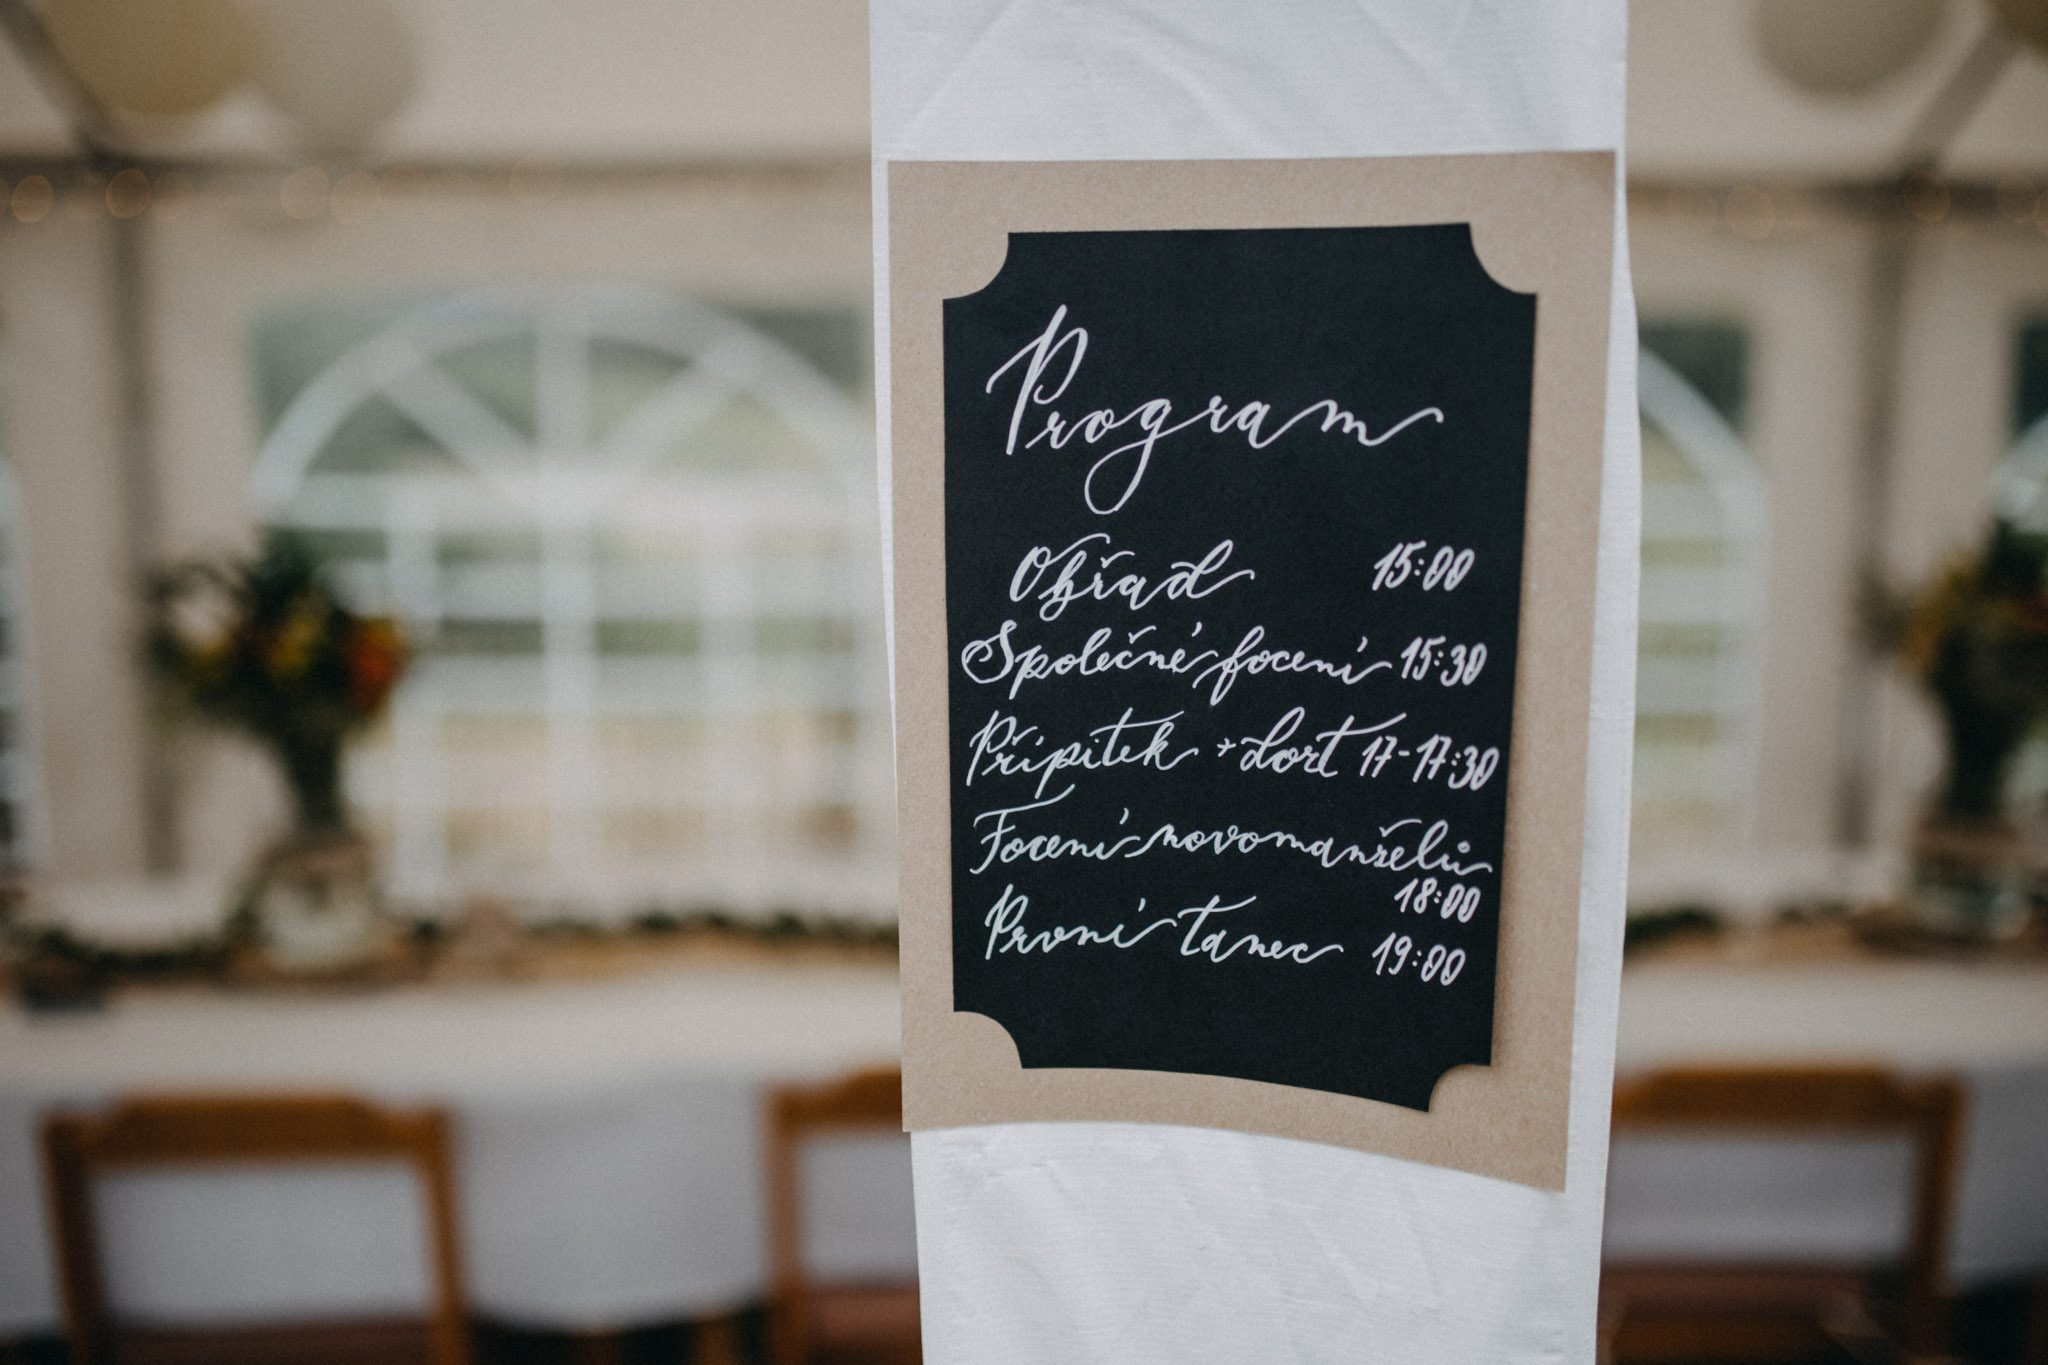 Program
Obřad 15:00
Společné focení 15:30
Přípitek + dort 17-17:30
Focení novomanželů
18:00
První tanec 19:00